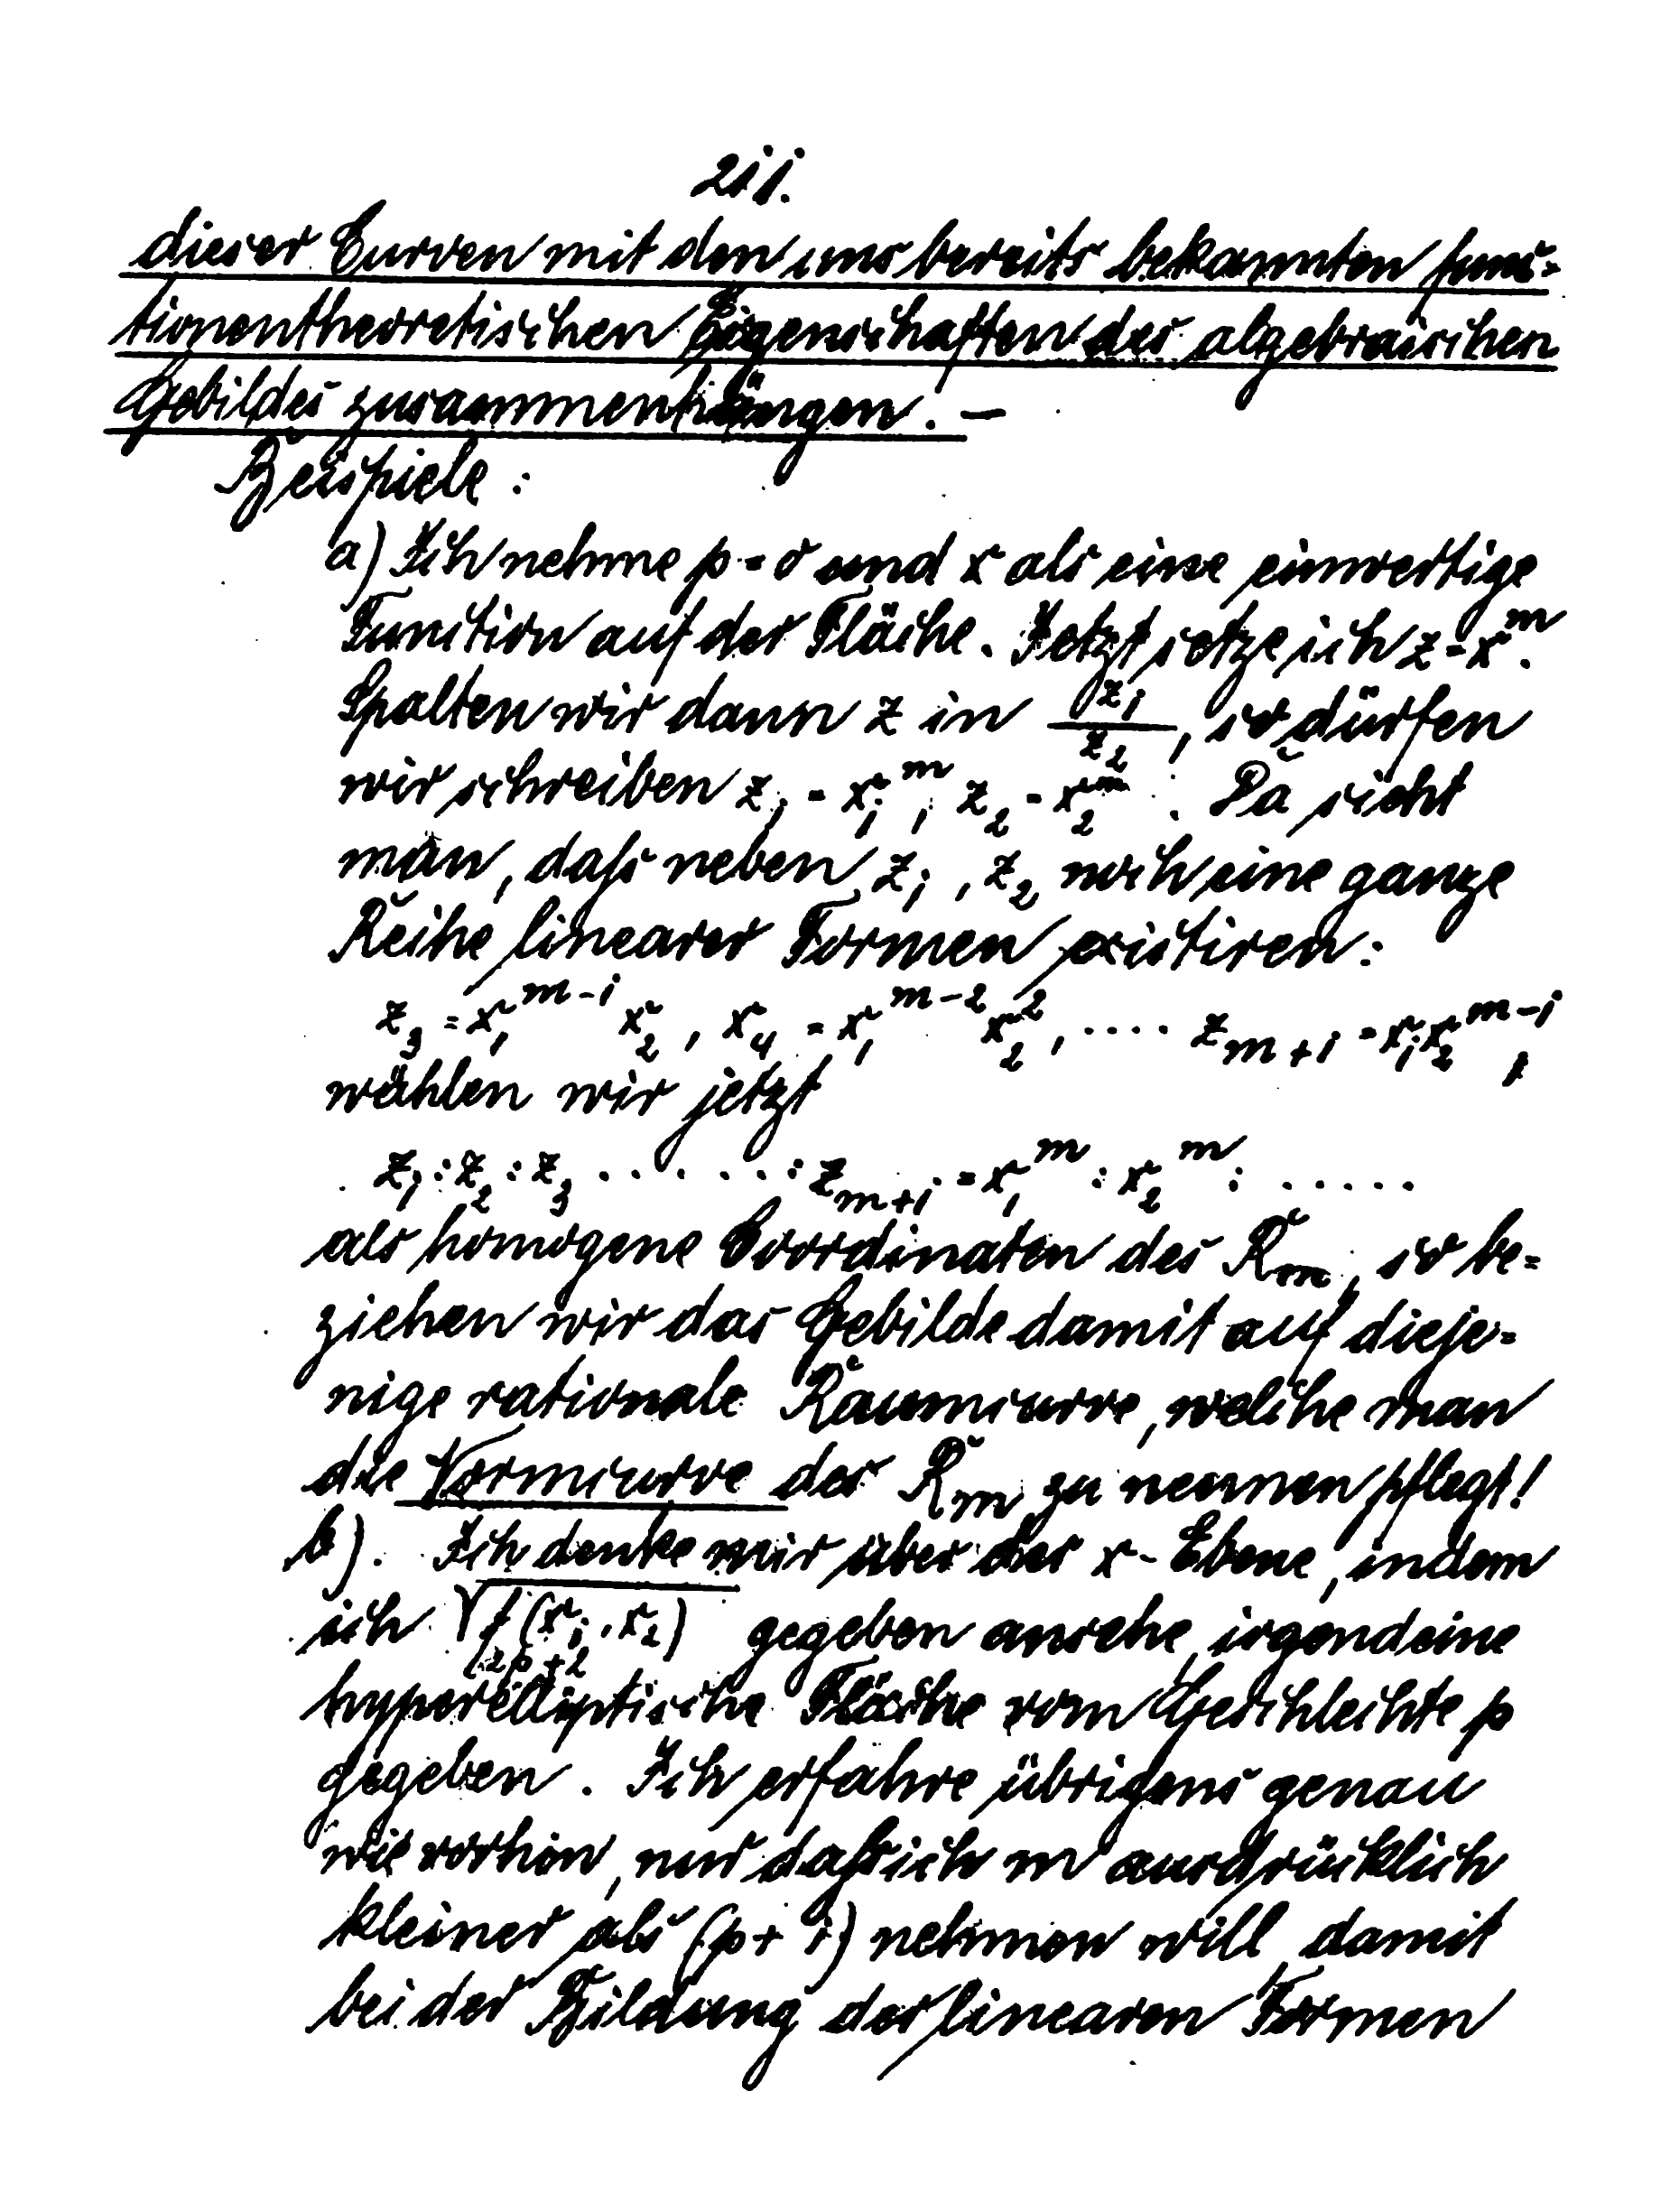 211.
dieser Curven mit den uns bereits bekannten func-
tionentheoretischen Eigenschaften des algebraischen
Gebildes zusammenhängen. —
Beispiele :
a) Ich nehme p = 0 und x als eine einwertige
Function auf der Fläche. Jetzt setze ich z = x^m.
Spalten wir dann z in z₁/z₂, so dürfen
wir schreiben z₁ = x₁^m, z₂ = x₂^m. Da sieht
man, daß neben z₁, z₂ noch eine ganze
Reihe linearer Formen existiren:
z₃ = x₁^{m-1} x₂, x₄ = x₁^{m-2} x₂², .... z_{m+1} = x₁x₂^{m-1},
wählen wir jetzt
z₁ : z₂ : z₃ ....... : z_{m+1} = x₁^m : x₂^m : .....
als homogene Coordinaten des R_m, so be-
ziehen wir das Gebilde damit auf dieje-
nige rationale Raumcurve, welche man
die Normcurve des R_m zu nennen pflegt!
b). Ich denke mir über der x-Ebene, indem
ich √f_{2p+2}(x₁, x₂) gegeben ansehe, irgendeine
hyperelliptische Fläche vom Geschlechte p
gegeben. Ich erfahre übrigens genau
wie vorhin, nur daß ich m ausdrücklich
kleiner als (p+1) nehmen will, damit
bei der Bildung der linearen Formen